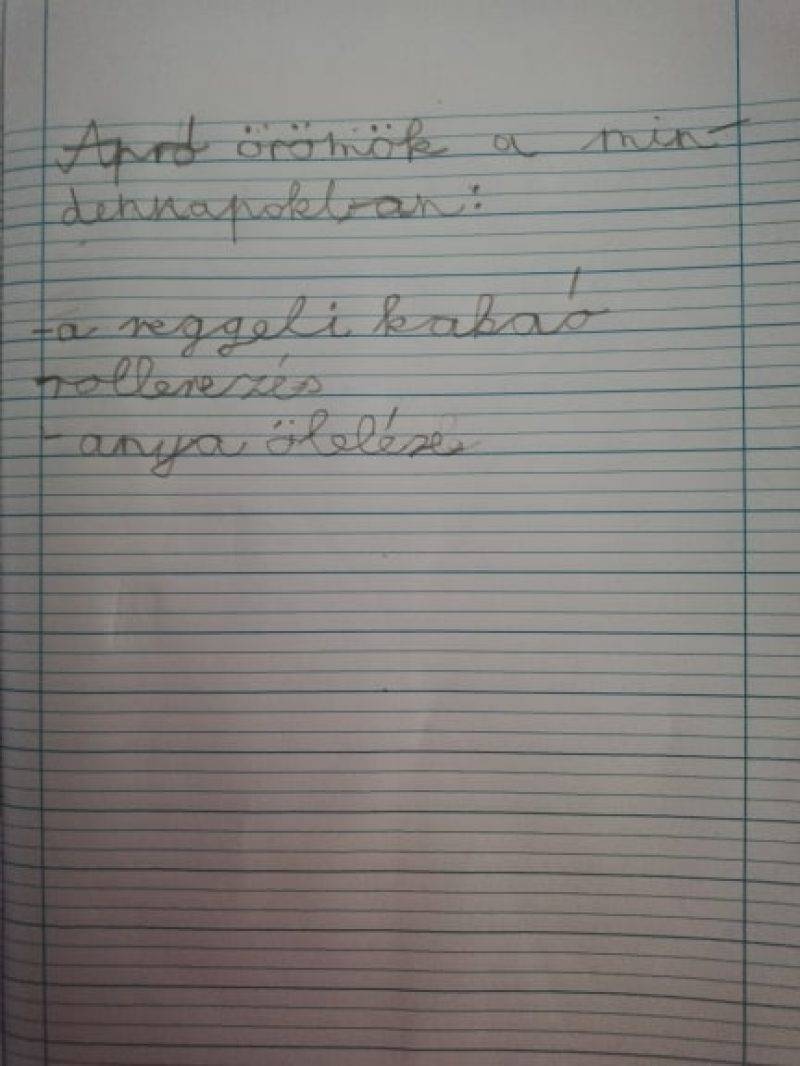 Apró örömök a min-
dennapokban:
-a reggeli kakaó
-rollerezés
-anya ölelése